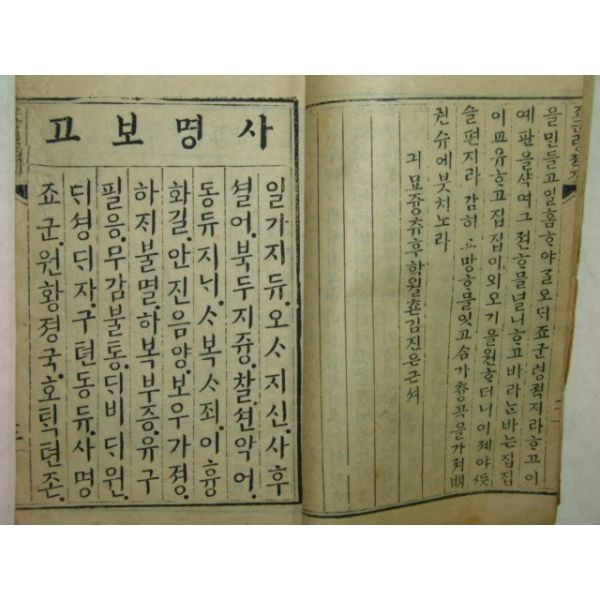 죠군령젹지
을민들고일홈ᄒᆞ야ᄀᆞᆯ오ᄃᆡ죠군령젹지라ᄒᆞ고이
예판을샥여그젼ᄒᆞ믈널니ᄒᆞ고바라ᄂᆞᆫ바ᄂᆞᆫ집집
유ᄒᆞ고집집이외오기을원ᄒᆞ더니이졔야
슬편지라감히ᄉᆞ망ᄒᆞ믈잇고슴가춍곡을가져
권슈에븟치노라
긔묘즁츄후학월촌김진은근셔
사명보고
일가지듀.오ᄉᆞ지신.사후
셜어.북두지즁.찰션악어.
동듀지ᄂᆡ.ᄉᆞ복ᄉᆞ죄.이흉
화길.안진음양.보우가졍.
하ᄌᆡ불멸.하복부증.유구
필응.무감불통.ᄃᆡ비ᄃᆡ원.
ᄃᆡ셩ᄃᆡᄌᆞ.구텬동듀.사명
죠군.원황졍국.호ᄐᆡᆨ텬존.